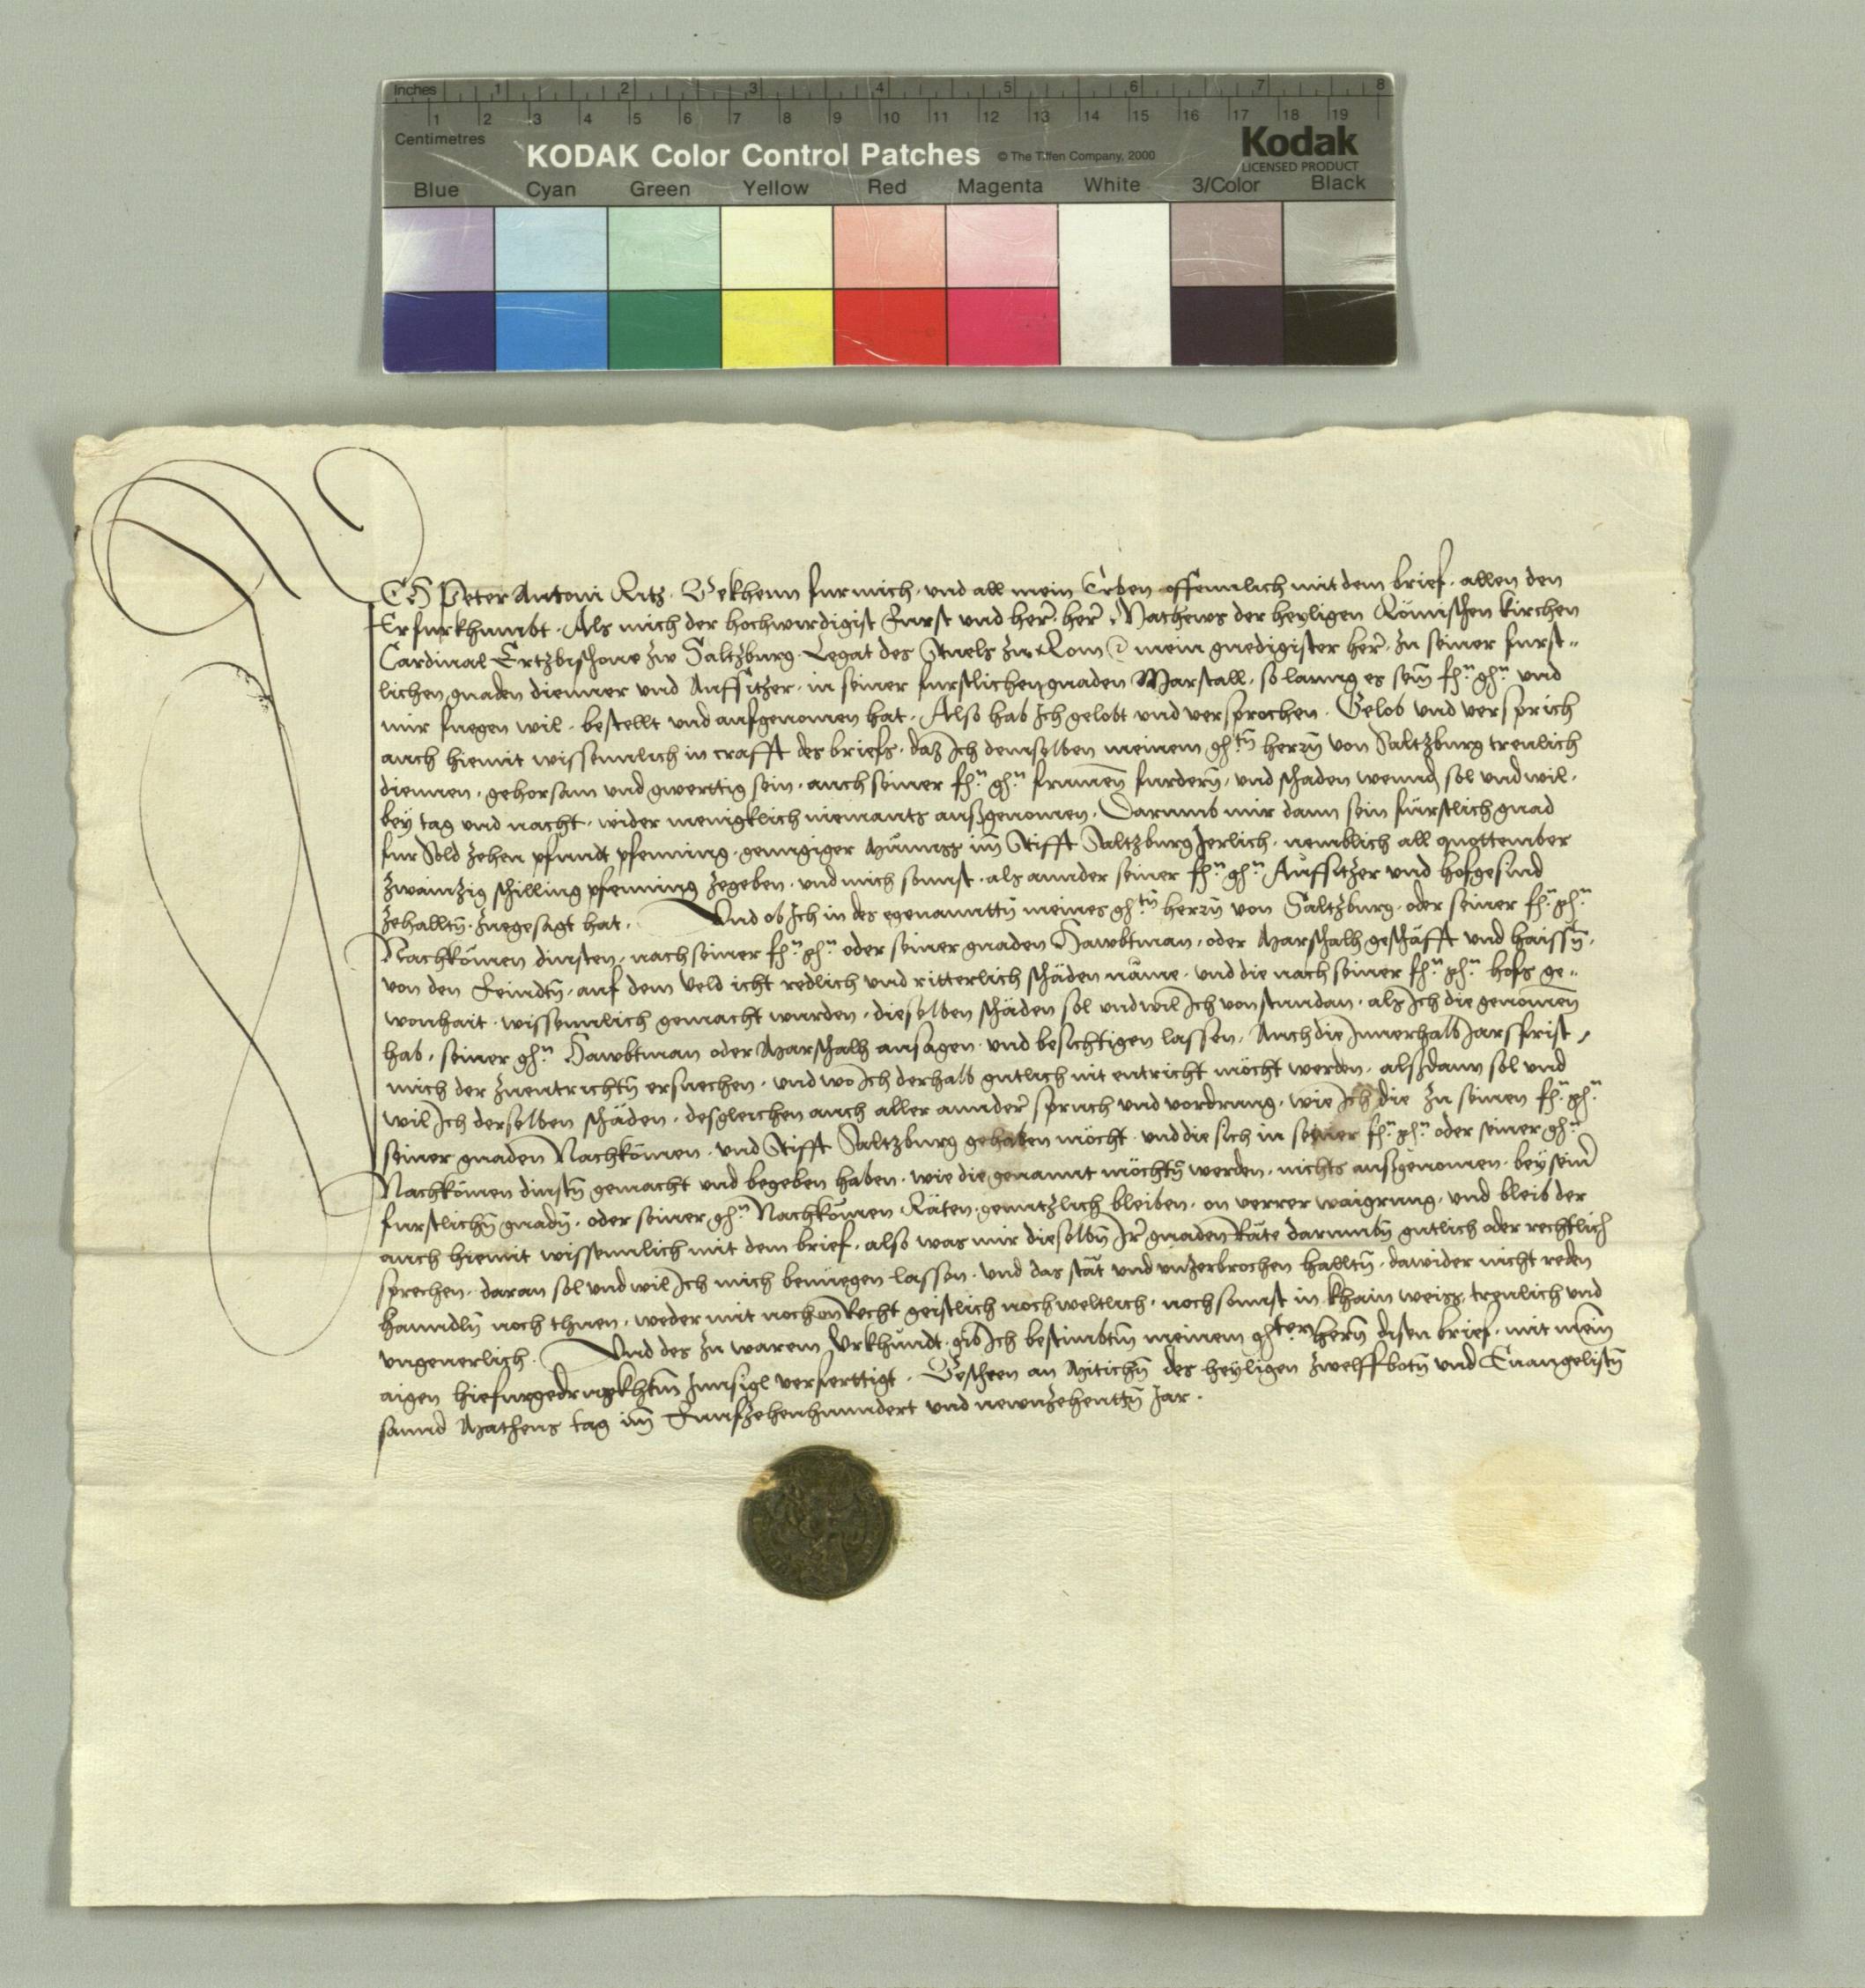 Inches 1 2 3 4 5 6 7 8
1 2 3 4 5 6 7 8 9 10 11 12 13 14 15 16 17 18 19
Centimetres
KODAK Color Control Patches © The Tiffen Company, 2000 Kodak
LICENSED PRODUCT
Blue Cyan Green Yellow Red Magenta White 3/Color Black
ICH Peter Antoni Ritz. Bekhenn fur mich, und all mein Erben offennlich mit dem brief, allen den
Er furkhumbt. Als mich der hochwirdigist Furst und her̄, her̄ Matheus der heyligen Römischen kirchen
Cardinal Ertzbischove zw Saltzburg Legat des Stuels zw Rom ⁊c mein gnedigister her̄, zu seiner furst„
lichen gnaden dienner und Auffsitzer, in seiner furstlichen gnaden Marstall, so lanng es sein̄ fh.n gh.n und
mir fuegen wil, bestellt und aufgenomen hat, Also hab Ich gelobt und versprochen. Gelob und versprich
auch hiemit wissennlich in crafft des briefs, daz Ich demselben meinem gh.tn̄ herrn̄ von Saltzburg treulich
diennen, gehorsam und gwerttig sein, auch seiner fh.n gh.n frumen̄ furdern̄, und schaden wennd̄ sol und wil,
bey tag und nacht, wider menigklich niemants außgenomen, Darumb mir dann sein fürstlich gnad
fur Sold zehen pfundt pfenning, genngiger Münnss im̄ Stifft Saltzburg Jerlich, nemblich all quottember
zwainzig schilling pfenning zegeben, und mich sonnst, als annder seiner fh.n gh.n Auffsitzer und hofgesind
zehalltn̄, zuegesagt hat. Und ob Ich in des egenanntn̄ meines gh.tn̄ herrn̄ von Saltzburg, oder seiner fh.n gh.n
Nachkomen dinsten, nach seiner fh.n gh.n oder seiner gnaden Hawbtman, oder Marschalh geschäfft und haissn̄,
von den Feindtn̄, auf dem Veld icht redlich und ritterlich schäden näme, und die nach seiner fh.n gh.n hofs ge„
wonhait, wissennlich gemacht wurden, dieselben schäden sol und wil Ich von stundan, als Ich die genomen̄
hab, seiner gh.n Hawbtman oder Marschalh ansagen und besichtigen lassen, Auch die Innerhalb Jarsfrist,
mich der zuentrichtn̄ ersuechen, und wo Ich derhalb guetlich nit entricht möcht werden, alßdann sol und
wil Ich derselben schäden, desgleichen auch aller annder̄ spruch und vordrung, wie Ich die zu seinen fh.n gh.n
seiner gnaden Nachkomen, und Stifft Saltzburg gehaben möcht, und die sich in seiner fh.n gh.n oder seiner gh.n
Nachkomen dinstn̄ gemacht und begeben haben, wie die genannt möchtn̄ werden, nichts außgenomen, bey sein̄
furstlichn̄ gnadn̄, oder seiner gh.n Nachkomen Räten, genntzlich bleiben, on verrer waigrung, und bleib der
auch hiemit wissennlich mit dem brief, also was mir dieselbn̄ Ir̄ gnaden Räte darumbn̄ guetlich oder rechtlich
sprechen, daran sol und wil Ich mich benuegen lassen, und das stät und unzerbrochen halltn̄, dawider nicht reden
hanndln̄ noch thuen, weder mit noch on Recht geistlich noch weltlich, noch sonnst in khain weiss, treulich und
ungeuerlich. Und des zu warem Urkhundt, gib Ich bestimbtm̄ meinem gh.ten hern̄ disen brief, mit mein̄
aigen hiefurgedrugkhtm̄ Innsigl verferttigt. Beschehen an Mitichn̄ des heyligen zwelffbotn̄ und Euangelistn̄
sannd Matheus tag im̄ Funfzehenhundert und newnzehenttn̄ Jar.